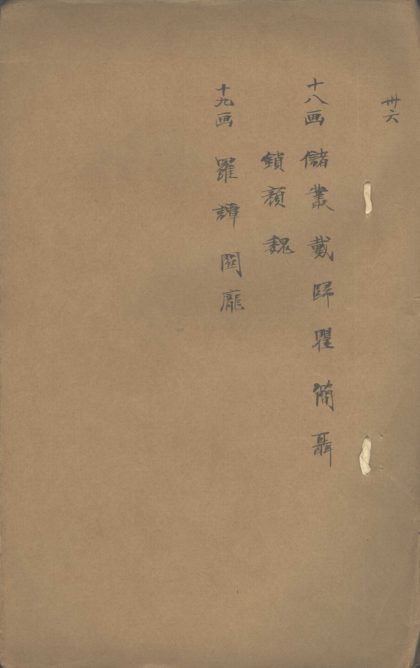 卅六
十八画 儲 叢 戴 歸 瞿 簡 聶
鎖 顏 魏
十九画 羅 譚 関 龐